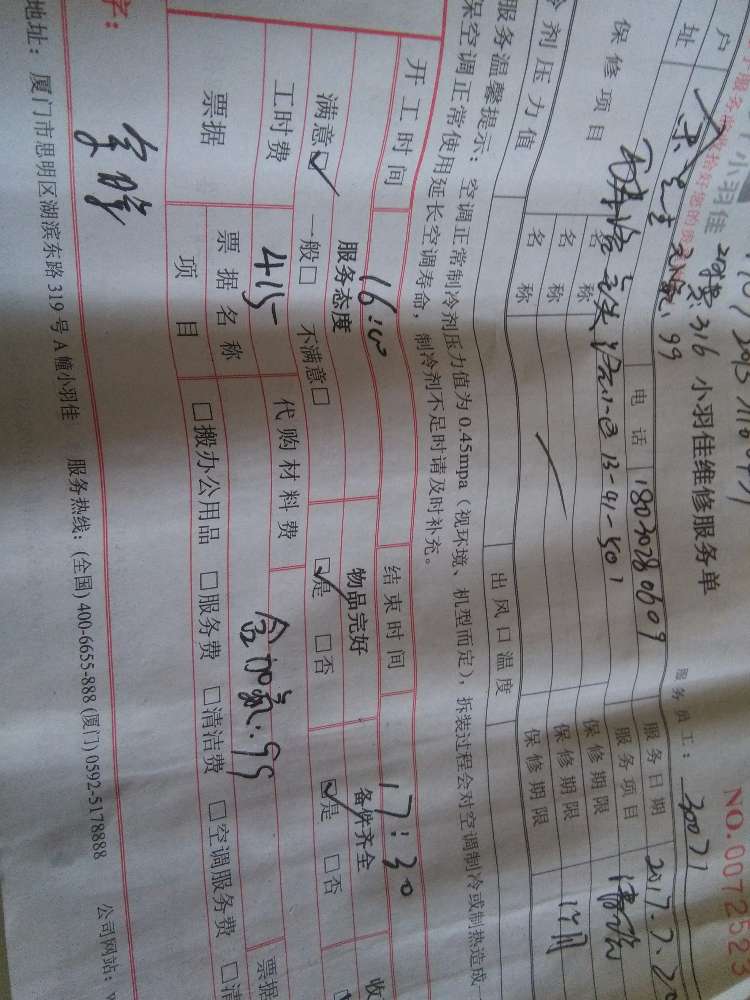 小羽佳
小羽佳维修服务单
NO.0072523
服务员工：30071
户
电话 18030280609
服务日期 2017.7.20
址
13-41-501
服务项目
保修项目
名称
保修期限
名称
保修期限
名称
保修期限
剂压力值
出风口温度
服务温馨提示：空调正常制冷剂压力值为0.45mpa（视环境、机型而定），拆装过程会对空调制冷或制热造成
保空调正常使用延长空调寿命，制冷剂不足时请及时补充。
开工时间 16:10 结束时间 17:30
服务态度 物品完好 备件齐全
满意☑ 一般□ 不满意□ ☑是 □否 ☑是 □否
工时费 415 代购材料费 含加氟:99
票据 票据名称 票据
项目 □搬办公用品 □服务费 □清洁费 □空调服务费 □清
字：
地址：厦门市思明区湖滨东路319号A幢小羽佳 服务热线：(全国)400-6655-888(厦门)0592-5178888 公司网站：